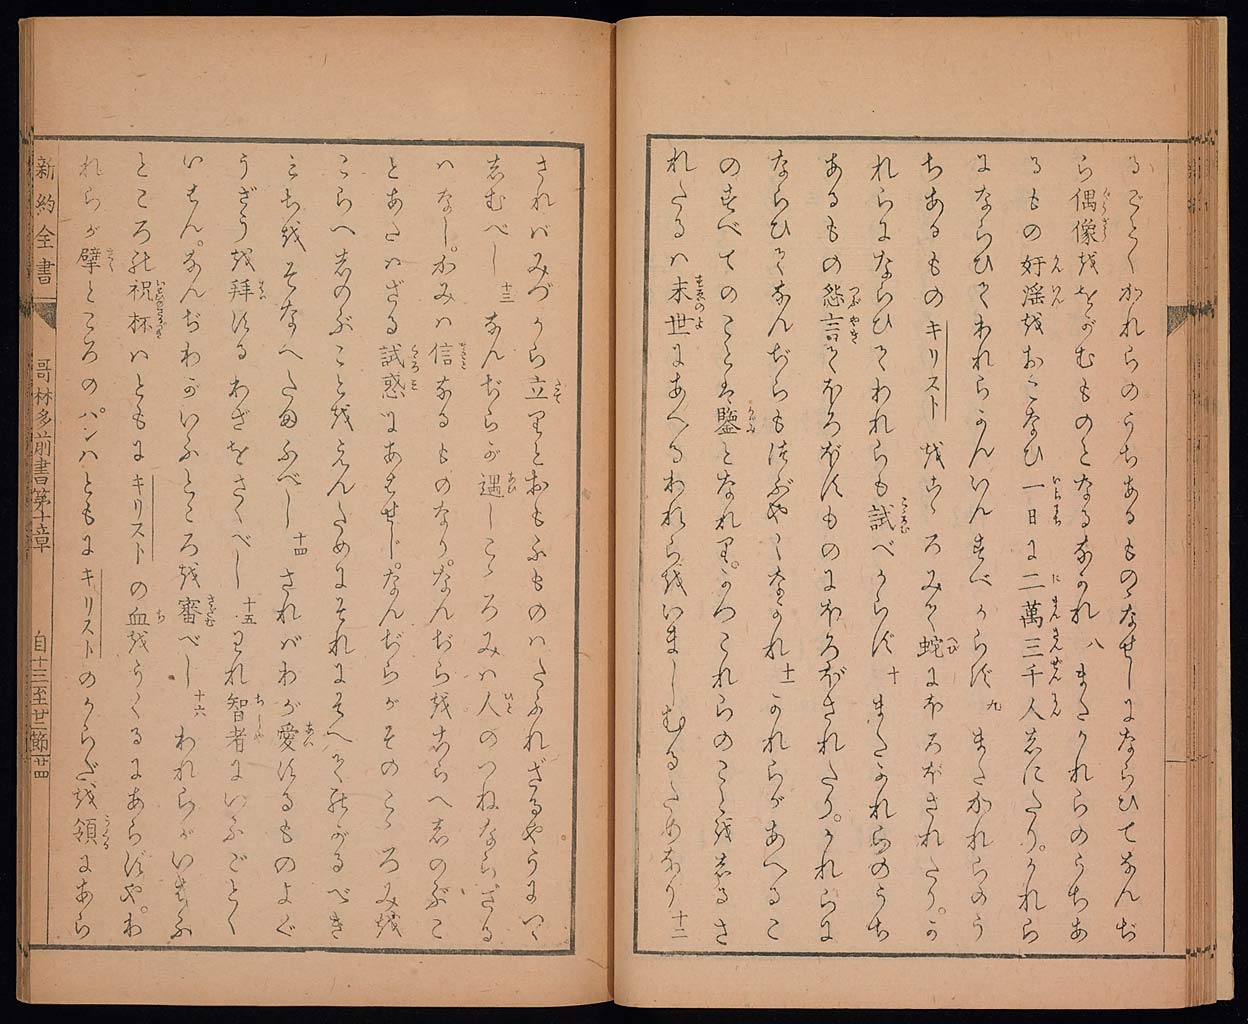 るごとくかれらのうちあるものゝなせしにならひてなんぢ
ら偶像をを〴むものとなるなかれ八またかれらのうちあ
るもの奸淫をおこなひ一日に二萬三千人志にたり。かれら
にならひてわれらかんいんすべからず九またかれらのう
ちあるものキリストをこゝろみて蛇にほろぼされたり。か
れらにならひてわれらも試べからず十またかれらのうち
あるもの怨言てほろぼすものにほろぼされたり。かれらに
ならひてなんぢらもつぶやくなかれ十一かれらがあへるこ
のすべてのことは鑒となれり。かつこれらのことを志るさ
れたるハ末世にあへるわれらをいましむるためなり十二
さればみづから立りとおもふものハたふれざるやうにいゝ
志むべし十三なんぢらが遇しこゝろみハ人のつねならざる
ハなし。かみハ信なるものなり。なんぢらを志らへ志のぶこ
とあたハざる試惑にあはせじ。なんぢらがそのこゝろみを
こらへ志のぶことをえんためにそれにそへてのがるべき
みちをそなへたまふべし十四さればわが愛するものよぐ
うざうを拝するわざをさくべし十五われ智者にいふごとく
いはん。なんぢわがいふところを審べし十六われらがいはふ
ところの祝杯ハともにキリストの血をうくるにあらずや。わ
れらが擘ところのパンハともにキリストのからだを領にあら
新約全書 哥林多前書第十章 自十三至廿二節 廿四